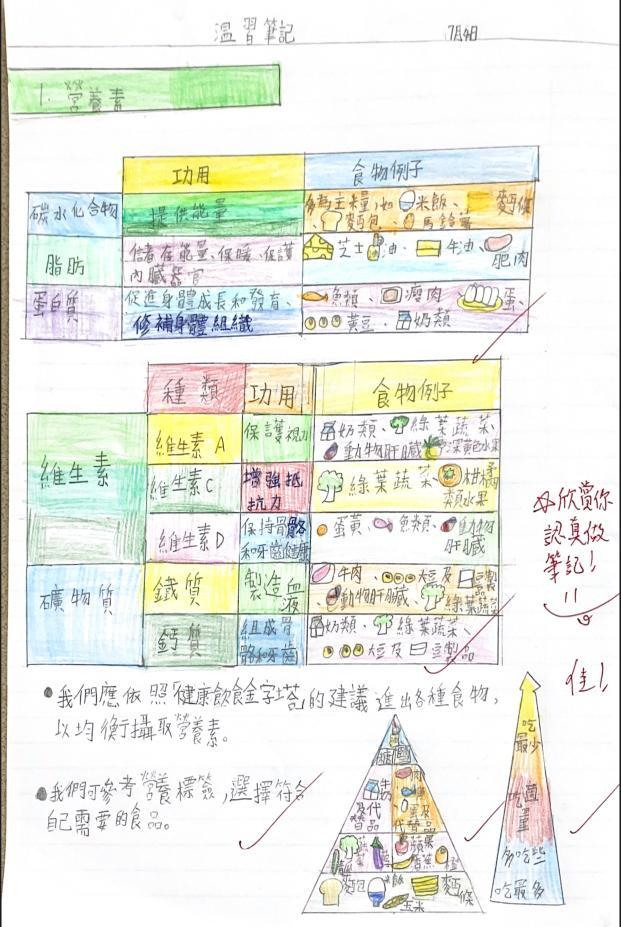 溫習筆記
7月4日
1. 營養素
功用
食物例子
碳水化合物
提供能量
多為主糧,如 米飯、 麵條
、 麵包、 馬鈴薯
脂肪
儲存能量、保暖、保護
內臟器官
芝士、 油、 牛油、
肥肉
蛋白質
促進身體成長和發育、
修補身體組織
魚類、 瘦肉 蛋、
黃豆、 奶類
種類
功用
食物例子
維生素
維生素A
保護視力
奶類、 綠葉蔬菜、
動物肝臟、 深黃色水果
維生素C
增強抵
抗力
綠葉蔬菜、 柑橘
類水果
維生素D
保持骨骼
和牙齒健康
蛋黃、 魚類、 動物
肝臟
礦物質
鐵質
製造血
液
牛肉、 大豆及 豆製品
動物肝臟、 綠葉蔬菜
鈣質
組成骨
骼和牙齒
奶類、 綠葉蔬菜、
大豆及 豆製品
欣賞你
認真做
筆記!
佳!
•我們應依照「健康飲食金字塔」的建議進出各種食物,
以均衡攝取營養素。
•我們可參考營養標簽,選擇符合
自己需要的食品。
油 鹽
糖
奶
及代
替品
肉
蛋及
代替品
蔬
菜
蘋果
香蕉 橙
麵包 米飯 麵條
玉米
吃
最少
吃適
量
多吃些
吃最多